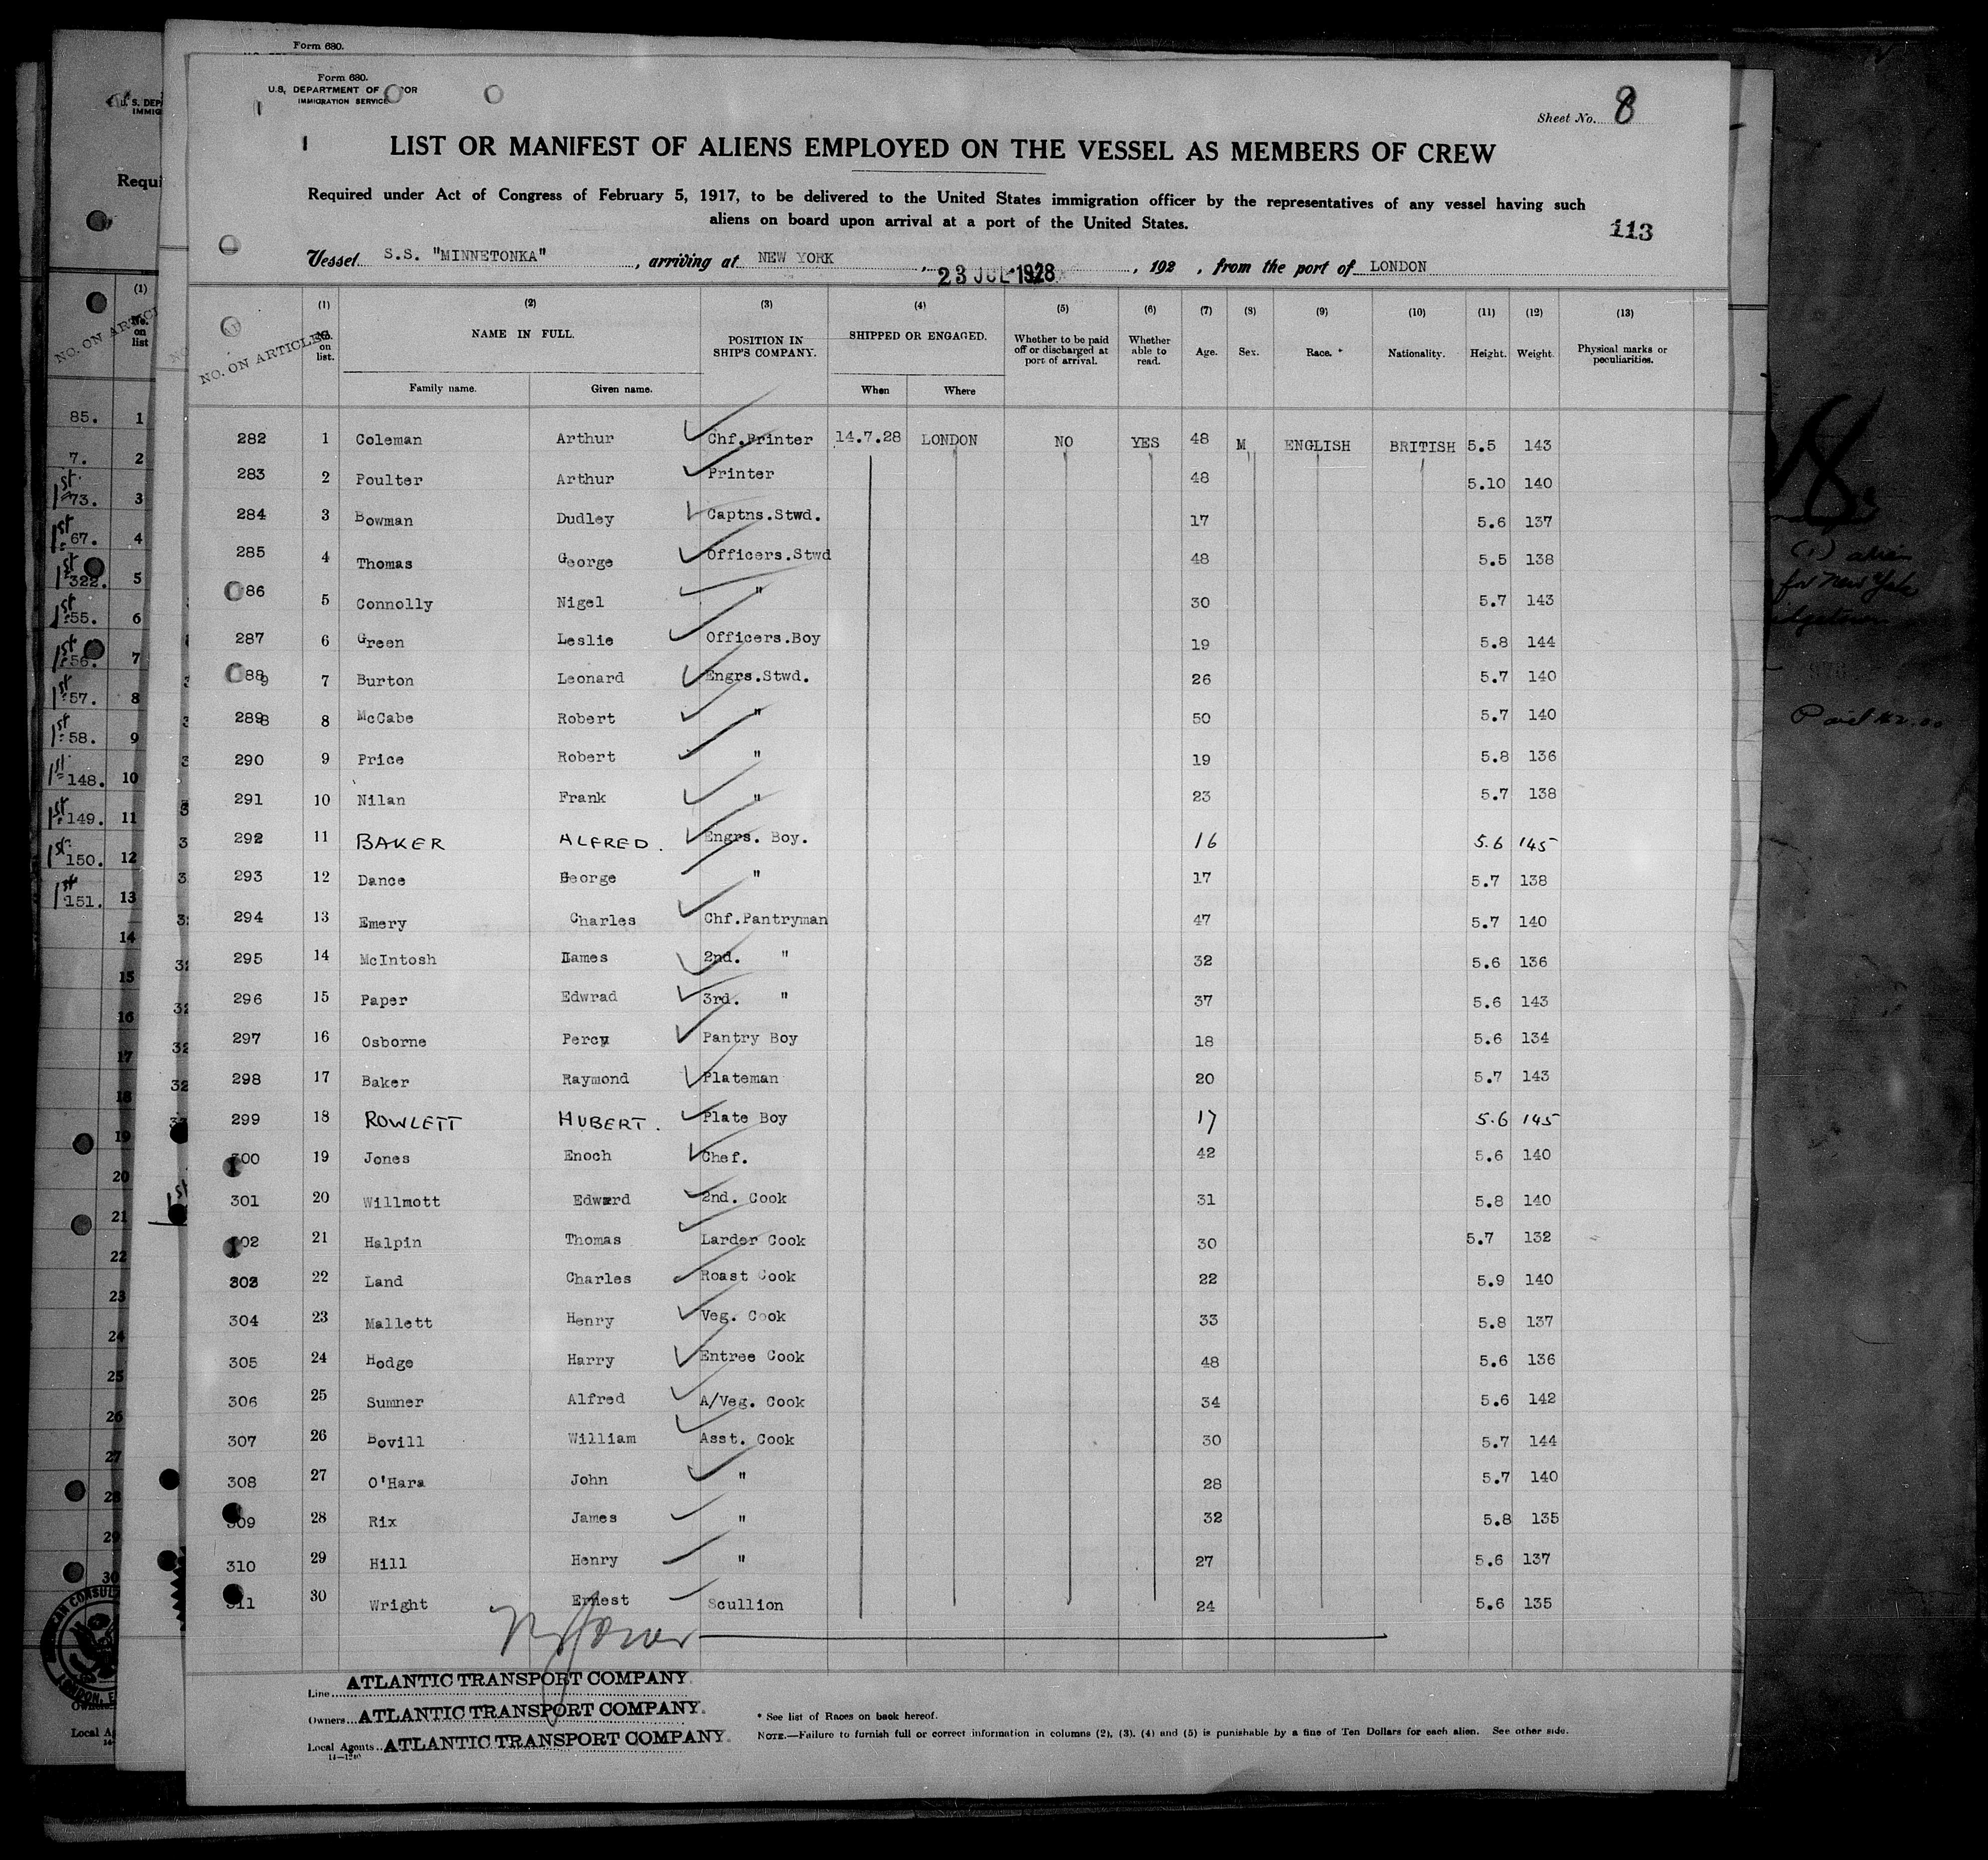 Form 680.
Form 680.
U.S. DEPARTMENT OF OR
IMMIGRATION SERVICE
Sheet No. 8
LIST OR MANIFEST OF ALIENS EMPLOYED ON THE VESSEL AS MEMBERS OF CREW
Required under Act of Congress of February 5, 1917, to be delivered to the United States immigration officer by the representatives of any vessel having such
aliens on board upon arrival at a port of the United States.
113
Vessel S.S. "MINNETONKA", arriving at NEW YORK, 23 JUL 1928, 192 , from the port of LONDON
(1) (2) (3) (4) (5) (6) (7) (8) (9) (10) (11) (12) (13)
NO. ON ARTICLES No. on list. NAME IN FULL. POSITION IN SHIP'S COMPANY. SHIPPED OR ENGAGED. Whether to be paid off or discharged at port of arrival. Whether able to read. Age. Sex. Race. * Nationality. Height. Weight. Physical marks or peculiarities.
Family name. Given name. When Where
282 1 Coleman Arthur Chf.Printer 14.7.28 LONDON NO YES 48 M ENGLISH BRITISH 5.5 143
283 2 Poulter Arthur Printer 48 5.10 140
284 3 Bowman Dudley Captns.Stwd. 17 5.6 137
285 4 Thomas George Officers.Stwd 48 5.5 138
86 5 Connolly Nigel " 30 5.7 143
287 6 Green Leslie Officers.Boy 19 5.8 144
88 9 7 Burton Leonard Engrs.Stwd. 26 5.7 140
289 8 8 McCabe Robert " 50 5.7 140
290 9 Price Robert " 19 5.8 136
291 10 Nilan Frank " 23 5.7 138
292 11 BAKER ALFRED. Engrs. Boy. 16 5.6 145
293 12 Dance George " 17 5.7 138
294 13 Emery Charles Chf.Pantryman 47 5.7 140
295 14 McIntosh James 2nd. " 32 5.6 136
296 15 Paper Edwrad 3rd. " 37 5.6 143
297 16 Osborne Percy Pantry Boy 18 5.6 134
298 17 Baker Raymond Plateman 20 5.7 143
299 18 ROWLETT HUBERT. Plate Boy 17 5.6 145
300 19 Jones Enoch Chef. 42 5.6 140
301 20 Willmott Edward 2nd. Cook 31 5.8 140
302 21 Halpin Thomas Larder Cook 30 5.7 132
303 22 Land Charles Roast Cook 22 5.9 140
304 23 Mallett Henry Veg. Cook 33 5.8 137
305 24 Hodge Harry Entree Cook 48 5.6 136
306 25 Sumner Alfred A/Veg. Cook 34 5.6 142
307 26 Bovill William Asst. Cook 30 5.7 144
308 27 O'Hara John " 28 5.7 140
309 28 Rix James " 32 5.8 135
310 29 Hill Henry " 27 5.6 137
311 30 Wright Ernest Scullion 24 5.6 135
Line ATLANTIC TRANSPORT COMPANY.
Owners ATLANTIC TRANSPORT COMPANY.
Local Agents ATLANTIC TRANSPORT COMPANY.
14—1240
* See list of Races on back hereof.
NOTE.—Failure to furnish full or correct information in columns (2), (3), (4) and (5) is punishable by a fine of Ten Dollars for each alien. See other side.
U. S. DEP
IMMIG
Requi
NO. ON ARTICL
(1)
No. on list
85. 1
7. 2
1st 73. 3
1st 67. 4
1st 322. 5
1st 55. 6
1st 56. 7
1st 57. 8
1st 58. 9
1st 148. 10
1st 149. 11
1st 150. 12
1st 151. 13
14
15
16
17
18
19
20
21
22
23
24
25
26
27
28
29
30
Owners
Local A
(1) alien
for New York
Paid $2.00